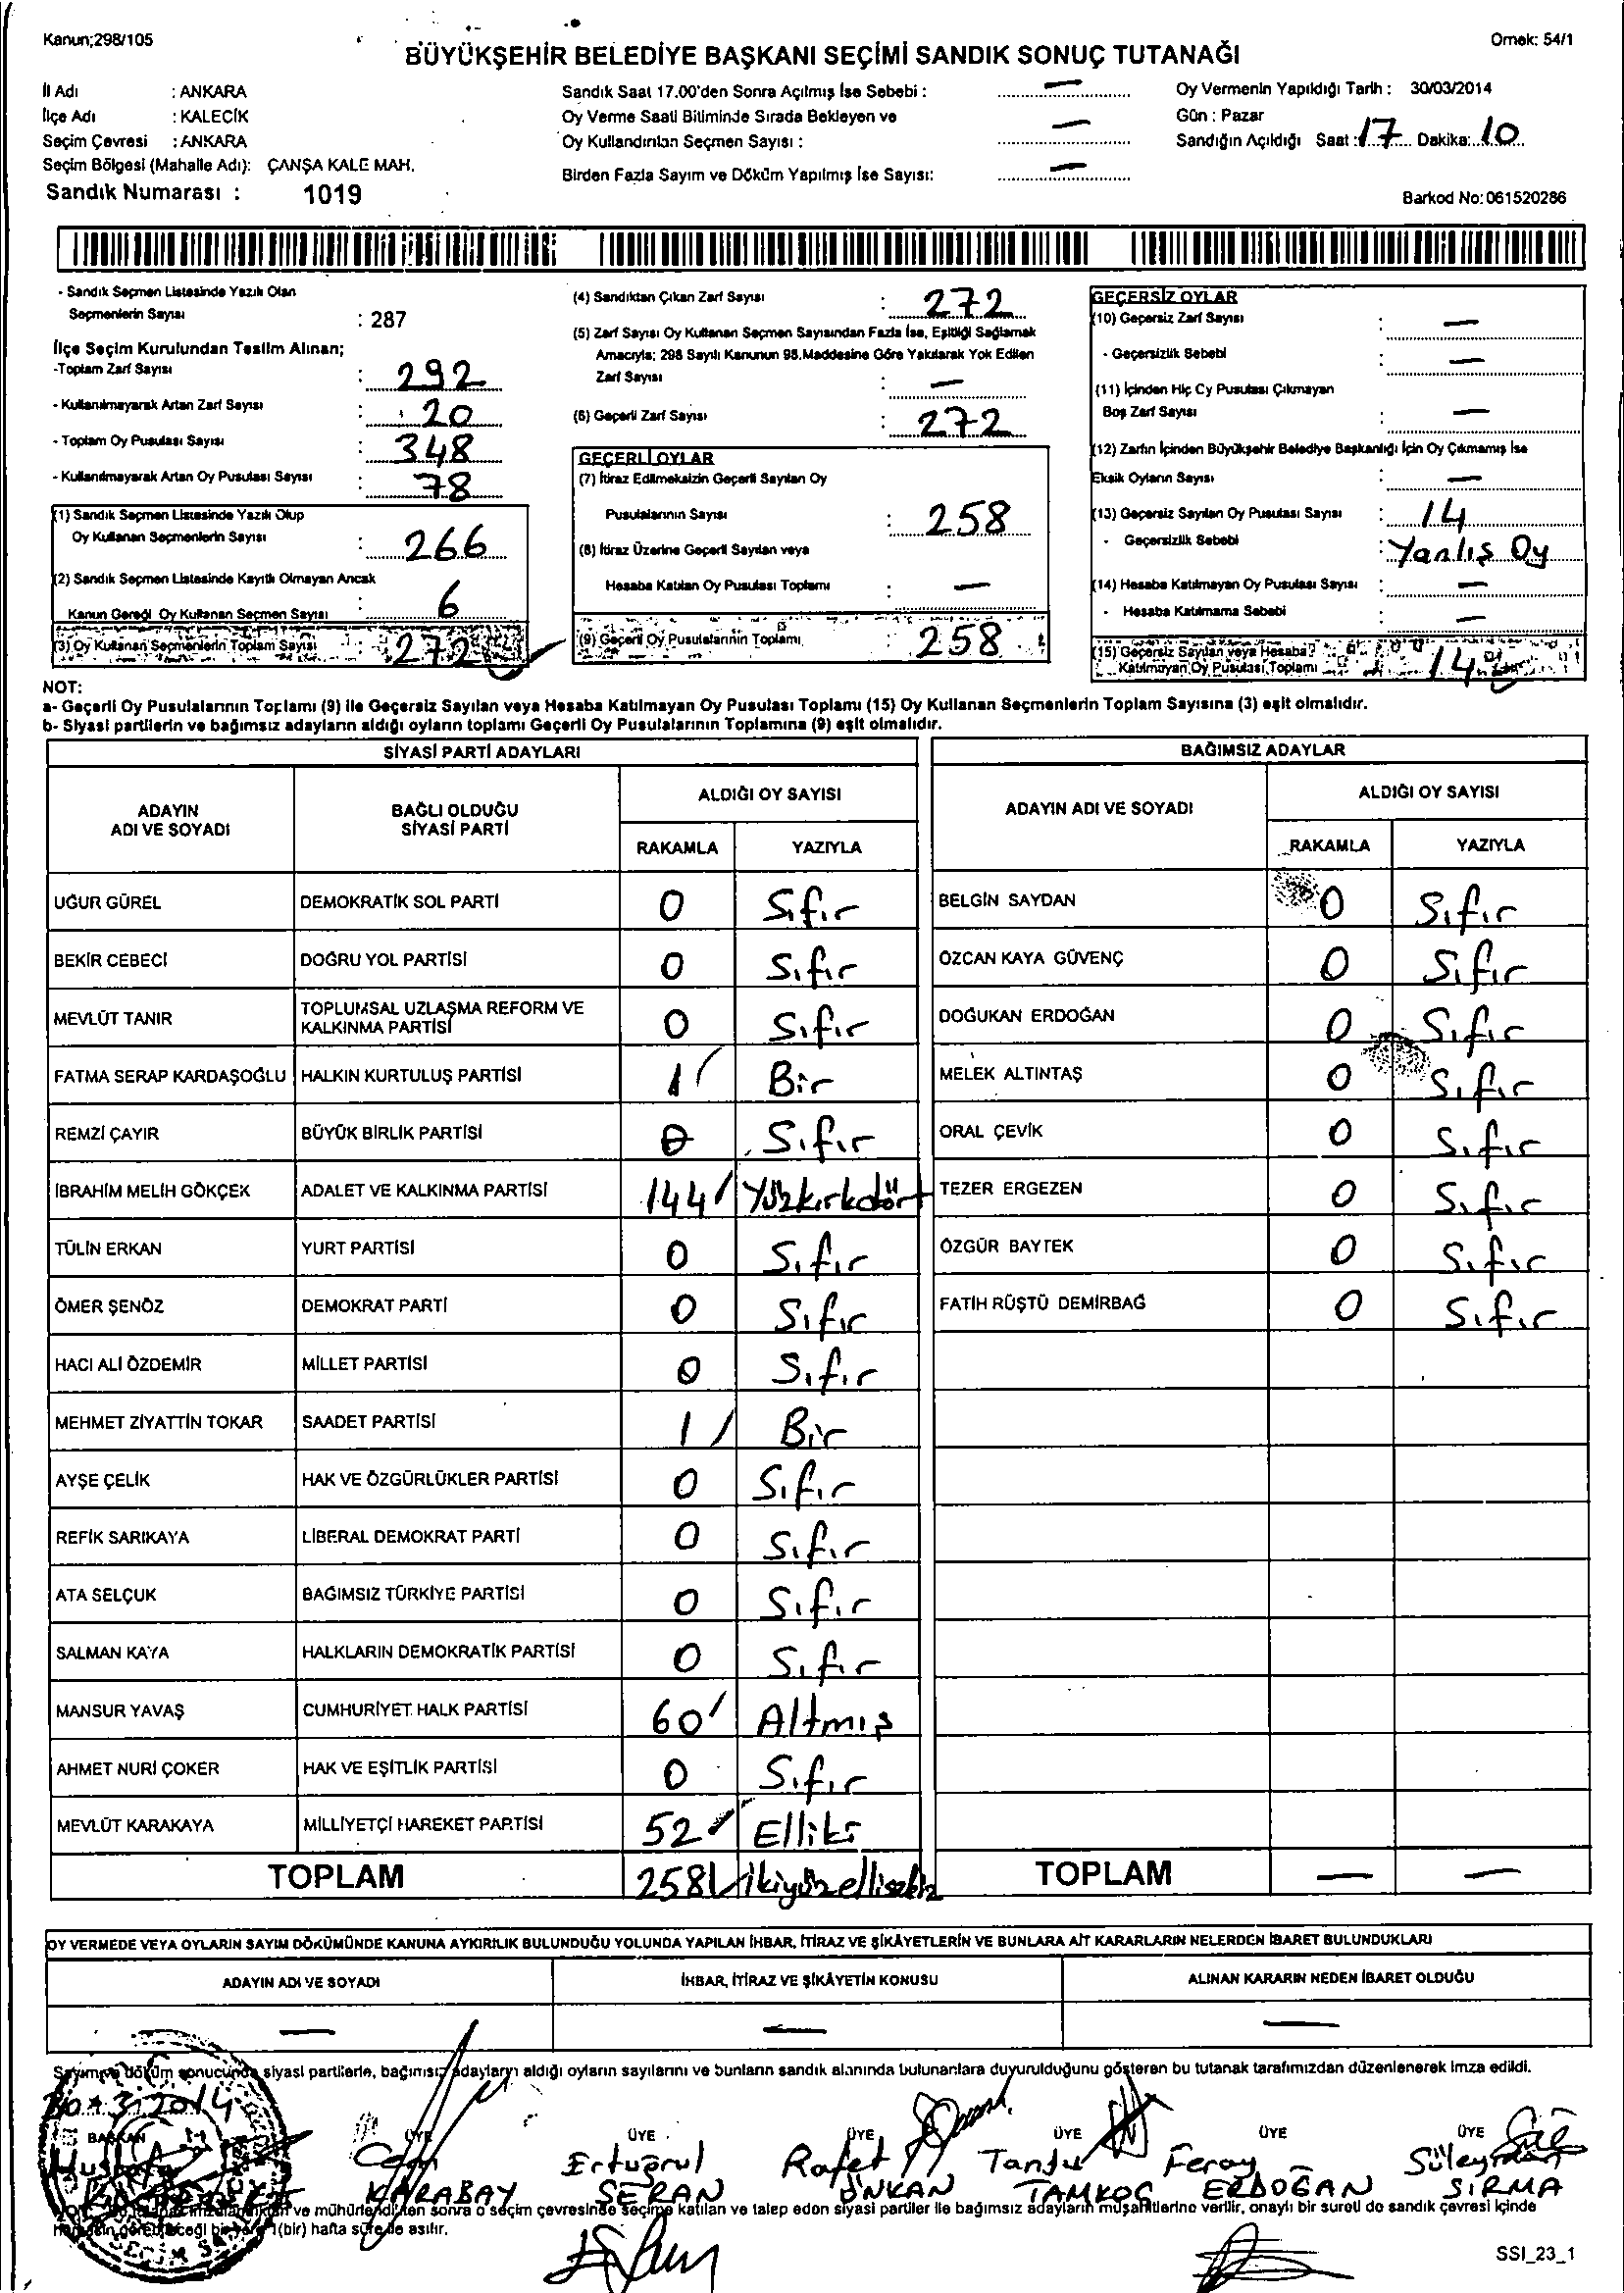 Kanun;298/105
Örnek: 54/1
BÜYÜKŞEHİR BELEDİYE BAŞKANI SEÇİMİ SANDIK SONUÇ TUTANAĞI
İl Adı : ANKARA
İlçe Adı : KALECİK
Seçim Çevresi : ANKARA
Seçim Bölgesi (Mahalle Adı): ÇANŞA KALE MAH.
Sandık Numarası : 1019
Sandık Saat 17.00'den Sonra Açılmış İse Sebebi : —
Oy Verme Saati Bitiminde Sırada Bekleyen ve
Oy Kullandırılan Seçmen Sayısı : —
Birden Fazla Sayım ve Döküm Yapılmış İse Sayısı: —
Oy Vermenin Yapıldığı Tarih : 30/03/2014
Gün : Pazar
Sandığın Açıldığı Saat : 17 Dakika: 10
Barkod No: 061520286
- Sandık Seçmen Listesinde Yazılı Olan
Seçmenlerin Sayısı : 287
İlçe Seçim Kurulundan Teslim Alınan;
-Toplam Zarf Sayısı : 292
- Kullanılmayarak Artan Zarf Sayısı : 20
- Toplam Oy Pusulası Sayısı : 348
- Kullanılmayarak Artan Oy Pusulası Sayısı : 78
(1) Sandık Seçmen Listesinde Yazılı Olup
Oy Kullanan Seçmenlerin Sayısı : 266
(2) Sandık Seçmen Listesinde Kayıtlı Olmayan Ancak
Kanun Gereği Oy Kullanan Seçmen Sayısı : 6
(3) Oy Kullanan Seçmenlerin Toplam Sayısı : 272
(4) Sandıktan Çıkan Zarf Sayısı : 272
(5) Zarf Sayısı Oy Kullanan Seçmen Sayısından Fazla İse, Eşitliği Sağlamak
Amacıyla; 298 Sayılı Kanunun 98.Maddesine Göre Yakılarak Yok Edilen
Zarf Sayısı : —
(6) Geçerli Zarf Sayısı : 272
GEÇERLİ OYLAR
(7) İtiraz Edilmeksizin Geçerli Sayılan Oy
Pusulalarının Sayısı : 258
(8) İtiraz Üzerine Geçerli Sayılan veya
Hesaba Katılan Oy Pusulası Toplamı : —
(9) Geçerli Oy Pusulalarının Toplamı : 258
GEÇERSİZ OYLAR
(10) Geçersiz Zarf Sayısı : —
- Geçersizlik Sebebi : —
(11) İçinden Hiç Oy Pusulası Çıkmayan
Boş Zarf Sayısı : —
(12) Zarfın İçinden Büyükşehir Belediye Başkanlığı İçin Oy Çıkmamış İse
Eksik Oyların Sayısı : —
(13) Geçersiz Sayılan Oy Pusulası Sayısı : 14
- Geçersizlik Sebebi : Yanlış Oy
(14) Hesaba Katılmayan Oy Pusulası Sayısı : —
- Hesaba Katılmama Sebebi : —
(15) Geçersiz Sayılan veya Hesaba
Katılmayan Oy Pusulası Toplamı : 14
NOT:
a- Geçerli Oy Pusulalarının Toplamı (9) ile Geçersiz Sayılan veya Hesaba Katılmayan Oy Pusulası Toplamı (15) Oy Kullanan Seçmenlerin Toplam Sayısına (3) eşit olmalıdır.
b- Siyasi partilerin ve bağımsız adayların aldığı oyların toplamı Geçerli Oy Pusulalarının Toplamına (9) eşit olmalıdır.
SİYASİ PARTİ ADAYLARI
ADAYIN ADI VE SOYADI
BAĞLI OLDUĞU SİYASİ PARTİ
ALDIĞI OY SAYISI
RAKAMLA YAZIYLA
UĞUR GÜREL DEMOKRATİK SOL PARTİ 0 Sıfır
BEKİR CEBECİ DOĞRU YOL PARTİSİ 0 Sıfır
MEVLÜT TANIR TOPLUMSAL UZLAŞMA REFORM VE KALKINMA PARTİSİ 0 Sıfır
FATMA SERAP KARDAŞOĞLU HALKIN KURTULUŞ PARTİSİ 1 Bir
REMZİ ÇAYIR BÜYÜK BİRLİK PARTİSİ 0 Sıfır
İBRAHİM MELİH GÖKÇEK ADALET VE KALKINMA PARTİSİ 144 Yüzkırkdört
TÜLİN ERKAN YURT PARTİSİ 0 Sıfır
ÖMER ŞENÖZ DEMOKRAT PARTİ 0 Sıfır
HACI ALİ ÖZDEMİR MİLLET PARTİSİ 0 Sıfır
MEHMET ZİYATTİN TOKAR SAADET PARTİSİ 1 Bir
AYŞE ÇELİK HAK VE ÖZGÜRLÜKLER PARTİSİ 0 Sıfır
REFİK SARIKAYA LİBERAL DEMOKRAT PARTİ 0 Sıfır
ATA SELÇUK BAĞIMSIZ TÜRKİYE PARTİSİ 0 Sıfır
SALMAN KAYA HALKLARIN DEMOKRATİK PARTİSİ 0 Sıfır
MANSUR YAVAŞ CUMHURİYET HALK PARTİSİ 60 Altmış
AHMET NURİ ÇOKER HAK VE EŞİTLİK PARTİSİ 0 Sıfır
MEVLÜT KARAKAYA MİLLİYETÇİ HAREKET PARTİSİ 52 Elliki
TOPLAM 258 ikiyüzellisekiz
BAĞIMSIZ ADAYLAR
ADAYIN ADI VE SOYADI
ALDIĞI OY SAYISI
RAKAMLA YAZIYLA
BELGİN SAYDAN 0 Sıfır
ÖZCAN KAYA GÜVENÇ 0 Sıfır
DOĞUKAN ERDOĞAN 0 Sıfır
MELEK ALTINTAŞ 0 Sıfır
ORAL ÇEVİK 0 Sıfır
TEZER ERGEZEN 0 Sıfır
ÖZGÜR BAYTEK 0 Sıfır
FATİH RÜŞTÜ DEMİRBAĞ 0 Sıfır
TOPLAM — —
OY VERMEDE VEYA OYLARIN SAYIM DÖKÜMÜNDE KANUNA AYKIRILIK BULUNDUĞU YOLUNDA YAPILAN İHBAR, İTİRAZ VE ŞİKÂYETLERİN VE BUNLARA AİT KARARLARIN NELERDEN İBARET BULUNDUKLARI
ADAYIN ADI VE SOYADI İHBAR, İTİRAZ VE ŞİKÂYETİN KONUSU ALINAN KARARIN NEDEN İBARET OLDUĞU
— — —
Sayım ve döküm sonucunda siyasi partilerle, bağımsız adayların aldığı oyların sayılarını ve bunların sandık alanında bulunanlara duyurulduğunu gösteren bu tutanak tarafımızdan düzenlenerek imza edildi.
30 3 2014
BAŞKAN ÜYE ÜYE ÜYE ÜYE ÜYE ÜYE
Ertuğrul Rafet Tansu Feray Süleyman
KARABAY SERAN ÖNKAN TAMKOÇ ERDOĞAN SIRMA
ve mühürlendikten sonra o seçim çevresinde seçime katılan ve talep eden siyasi partiler ile bağımsız adayların müşahitlerine verilir, onaylı bir sureti de sandık çevresi içinde
1(bir) hafta süre ile asılır.
SSI_23_1